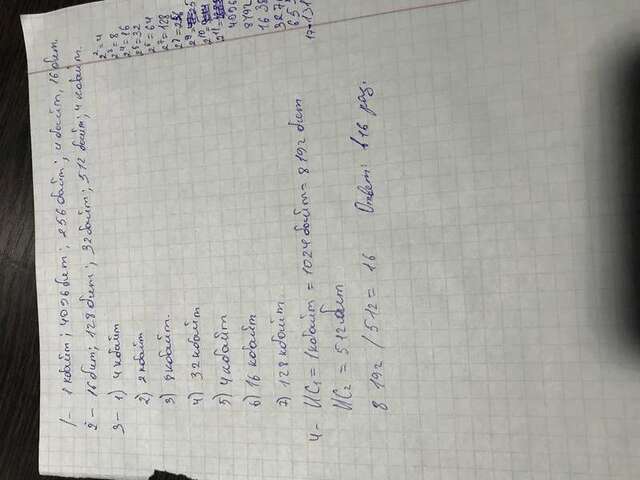 1 - 1 кбайт; 4096 бит; 256 байт; 4 байт, 16 бит.
2 - 16 бит; 128 бит; 32 байт; 512 байт; 4 кбайт.
3 - 1) 4 кбайт
2) 2 кбайт
3) 8 кбайт.
4) 32 кбайт
5) 4 кбайт
6) 16 кбайт
7) 128 кбайт.
4 - ИС₁ = 1 кбайт = 1024 байт = 8192 бит
ИС₂ = 512 бит
8192 / 512 = 16 Ответ: в 16 раз.
2² = 4
2³ = 8
2⁴ = 16
2⁵ = 32
2⁶ = 64
2⁷ = 128
2⁸ = 256
2⁹
2¹⁰
2¹¹
4096
8192